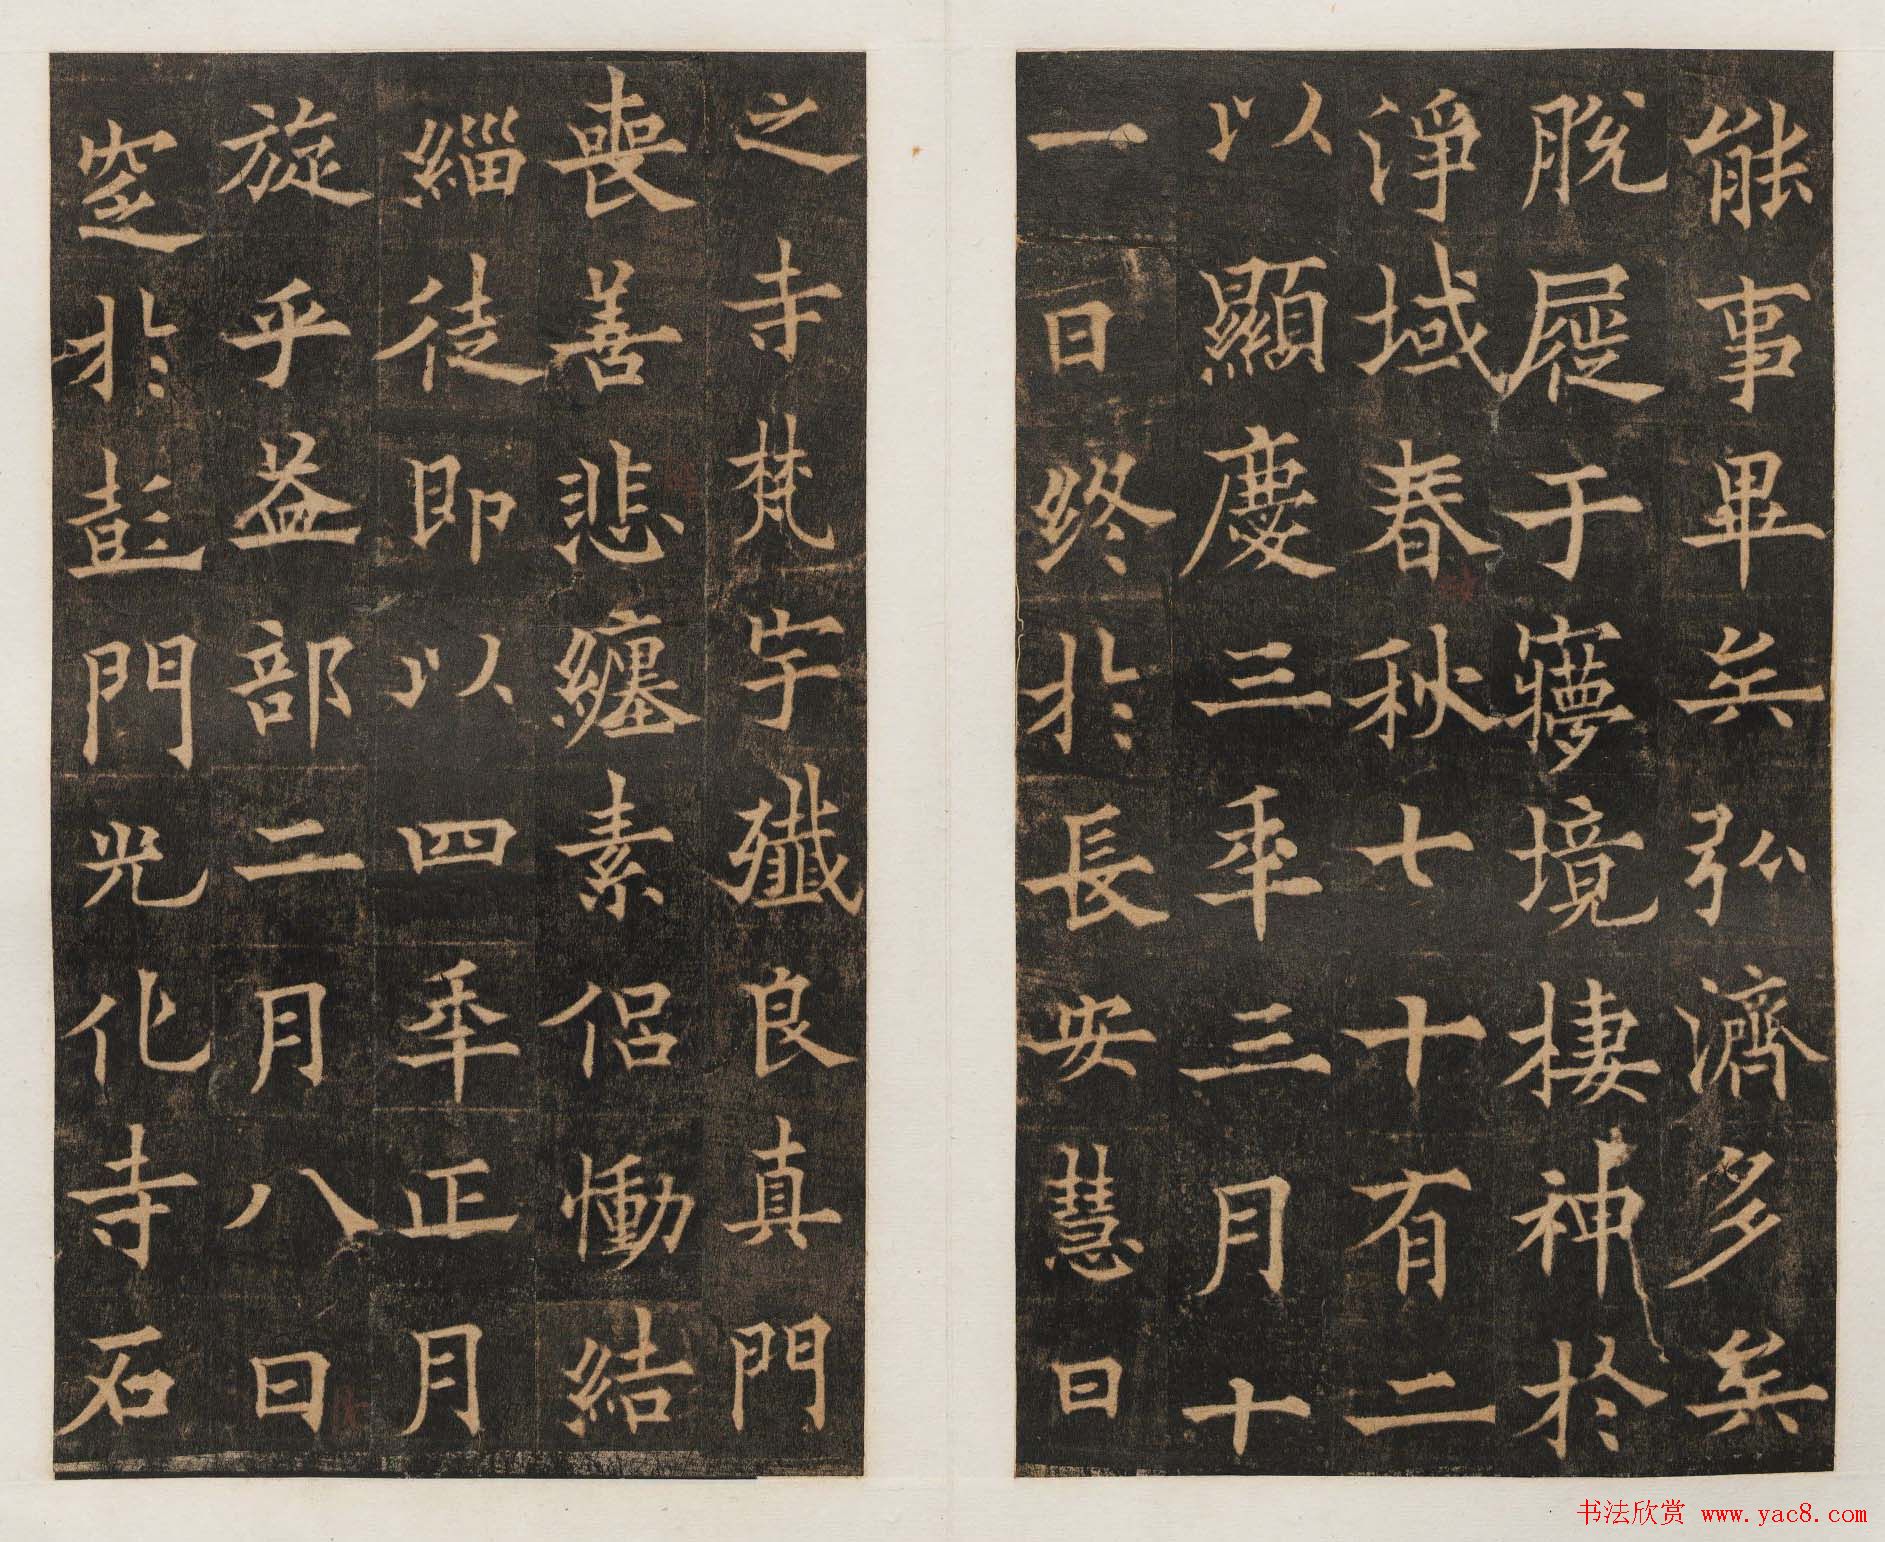 能事畢矣弘濟多矣
脫屣于㝱境棲神於
淨域春秋七十有二
以顯慶三年三月十
一日終於長安慧日
之寺梵宇殲良真門
喪善悲纏素侣慟結
緇徒即以四年正月
旋乎益部二月八日
窆於彭門光化寺石
书法欣赏 www.yac8.com